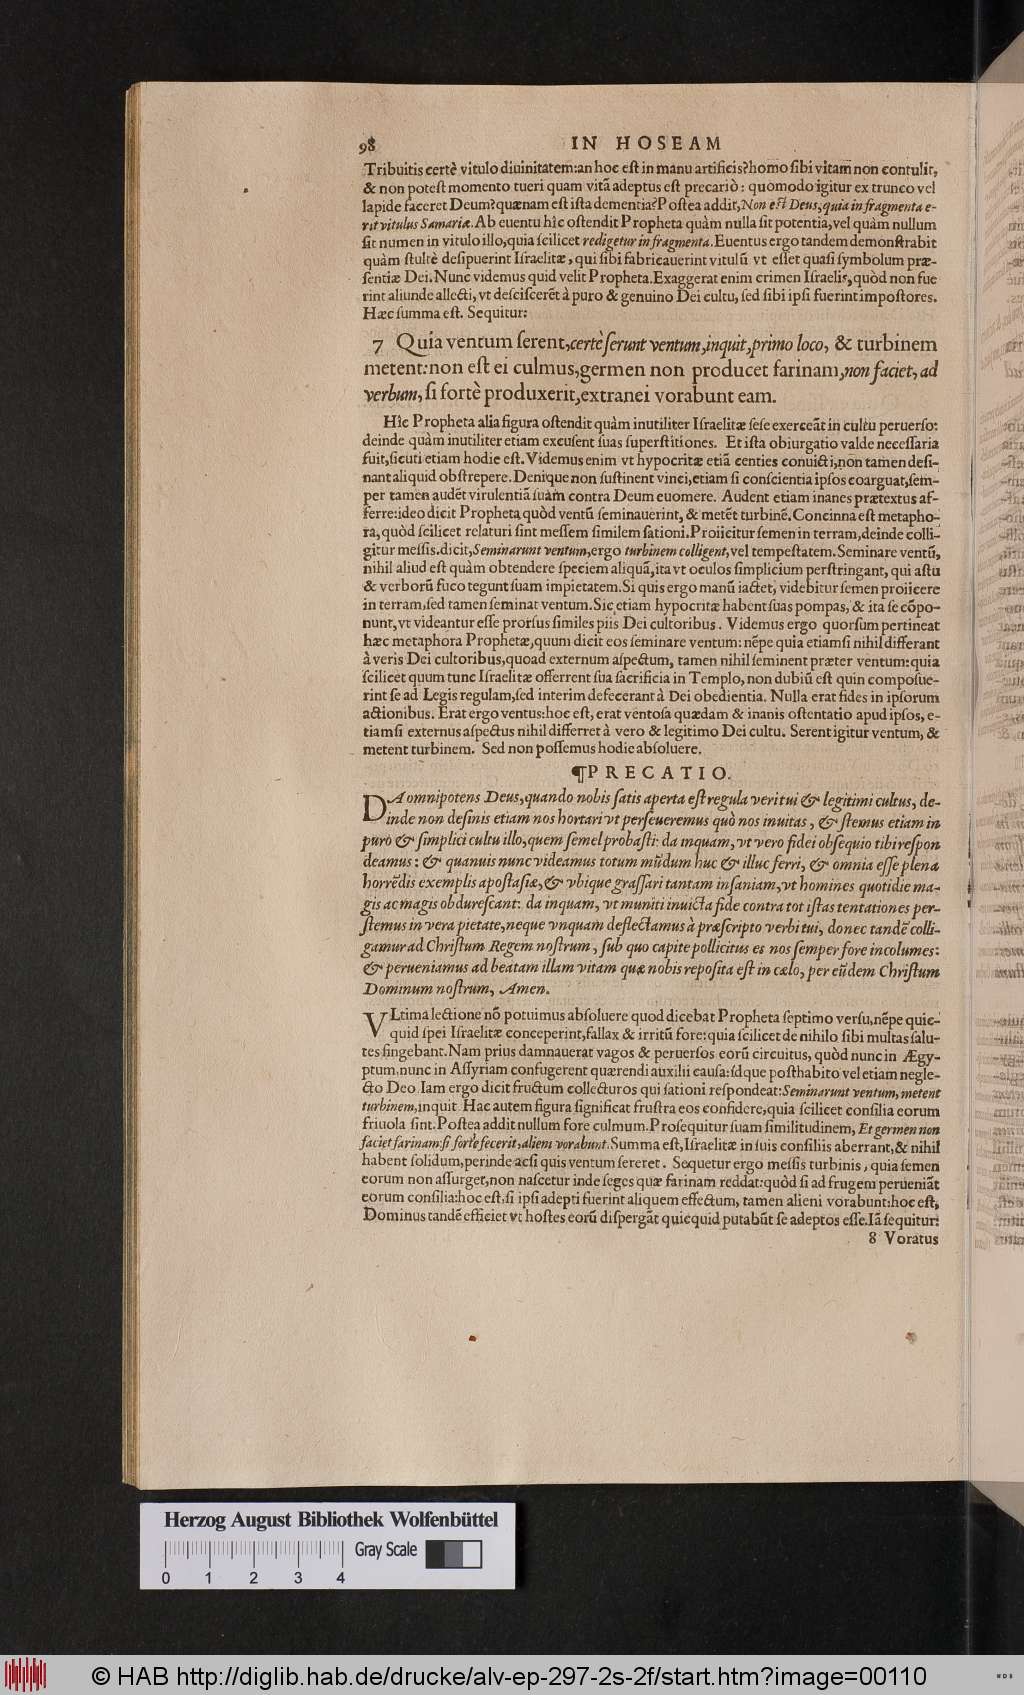 98 IN HOSEAM
Tribuitis certè vitulo diuinitatem:an hoc eſt in manu artificis?homo ſibi vitam non contulit,
& non poteſt momento tueri quam vitã adeptus eſt precariò : quomodo igitur ex trunco vel
lapide faceret Deum?quænam eſt iſta dementia?Poſtea addit,Non eſt Deus,quia in fragmenta e-
rit vitulus Samariæ.Ab euentu hîc oſtendit Propheta quàm nulla ſit potentia,vel quàm nullum
ſit numen in vitulo illo,quia ſcilicet redigetur in fragmenta.Euentus ergo tandem demonſtrabit
quàm ſtultè deſipuerint Iſraelitæ, qui ſibi fabricauerint vitulũ vt eſſet quaſi ſymbolum præ-
ſentiæ Dei.Nunc videmus quid velit Propheta.Exaggerat enim crimen Iſraelis,quòd non fue
rint aliunde allecti,vt deſciſcerẽt à puro & genuino Dei cultu, ſed ſibi ipſi fuerint impoſtores.
Hæc ſumma eſt. Sequitur:
7 Quia ventum ſerent,certè ſerunt ventum,inquit,primo loco, & turbinem
metent:non eſt ei culmus,germen non producet farinam,non faciet, ad
verbum, ſi fortè produxerit,extranei vorabunt eam.
Hîc Propheta alia figura oſtendit quàm inutiliter Iſraelitæ ſeſe exerceãt in cultu peruerſo:
deinde quàm inutiliter etiam excuſent ſuas ſuperſtitiones. Et iſta obiurgatio valde neceſſaria
fuit,ſicuti etiam hodie eſt.Videmus enim vt hypocritæ etiã centies conuicti,non tamen deſi-
nant aliquid obſtrepere.Denique non ſuſtinent vinci,etiam ſi conſcientia ipſos coarguat,ſem-
per tamen audẽt virulentiã ſuam contra Deum euomere. Audent etiam inanes prætextus af-
ferre:ideo dicit Propheta quòd ventũ ſeminauerint, & metẽt turbinẽ.Concinna eſt metapho-
ra,quòd ſcilicet relaturi ſint meſſem ſimilem ſationi.Proiicitur ſemen in terram,deinde colli-
gitur meſſis.dicit,Seminarunt ventum,ergo turbinem colligent,vel tempeſtatem.Seminare ventũ,
nihil aliud eſt quàm obtendere ſpeciem aliquã,ita vt oculos ſimplicium perſtringant, qui aſtu
& verborũ fuco tegunt ſuam impietatem.Si quis ergo manũ iactet, videbitur ſemen proiicere
in terram,ſed tamen ſeminat ventum.Sic etiam hypocritæ habent ſuas pompas, & ita ſe cõpo-
nunt,vt videantur eſſe prorſus ſimiles piis Dei cultoribus. Videmus ergo quorſum pertineat
hæc metaphora Prophetæ,quum dicit eos ſeminare ventum: nẽpe quia etiamſi nihil differant
à veris Dei cultoribus,quoad externum aſpectum, tamen nihil ſeminent præter ventum:quia
ſcilicet quum tunc Iſraelitæ offerrent ſua ſacrificia in Templo,non dubiũ eſt quin compoſue-
rint ſe ad Legis regulam,ſed interim defecerant à Dei obedientia. Nulla erat fides in ipſorum
actionibus. Erat ergo ventus:hoc eſt, erat ventoſa quædam & inanis oſtentatio apud ipſos, e-
tiamſi externus aſpectus nihil differret à vero & legitimo Dei cultu. Serent igitur ventum, &
metent turbinem. Sed non poſſemus hodie abſoluere.
¶PRECATIO.
DA omnipotens Deus,quando nobis ſatis aperta eſt regula veri tui & legitimi cultus, de-
inde non deſinis etiam nos hortari vt perſeueremus quò nos inuitas, & ſtemus etiam in
puro & ſimplici cultu illo,quem ſemel probaſti: da inquam, vt vero fidei obſequio tibi reſpon
deamus: & quanuis nunc videamus totum mũdum huc & illuc ferri, & omnia eſſe plena
horrẽdis exemplis apoſtaſiæ,& vbique graſſari tantam inſaniam,vt homines quotidie ma-
gis ac magis obdureſcant: da inquam, vt muniti inuicta fide contra tot iſtas tentationes per-
ſtemus in vera pietate,neque vnquam deflectamus à præſcripto verbi tui, donec tandẽ colli-
gamur ad Chriſtum Regem noſtrum, ſub quo capite pollicitus es nos ſemper fore incolumes:
& perueniamus ad beatam illam vitam quæ nobis repoſita eſt in cælo, per eũdem Chriſtum
Dominum noſtrum, Amen.
VLtima lectione nõ potuimus abſoluere quod dicebat Propheta ſeptimo verſu,nẽpe quic-
quid ſpei Iſraelitæ conceperint,fallax & irritũ fore:quia ſcilicet de nihilo ſibi multas ſalu-
tes fingebant.Nam prius damnauerat vagos & peruerſos eorũ circuitus, quòd nunc in Ægy-
ptum,nunc in Aſſyriam confugerent quærendi auxilii cauſa:idque poſthabito vel etiam negle-
cto Deo.Iam ergo dicit fructum collecturos qui ſationi reſpondeat:Seminarunt ventum, metent
turbinem,inquit. Hæc autem figura ſignificat fruſtra eos confidere,quia ſcilicet conſilia eorum
friuola ſint.Poſtea addit nullum fore culmum.Proſequitur ſuam ſimilitudinem, Et germen non
faciet farinam:ſi forte fecerit,alieni vorabunt.Summa eſt,Iſraelitæ in ſuis conſiliis aberrant,& nihil
habent ſolidum,perinde acſi quis ventum ſereret. Sequetur ergo meſſis turbinis, quia ſemen
eorum non aſſurget,non naſcetur inde ſeges quæ farinam reddat:quòd ſi ad frugem perueniãt
eorum conſilia:hoc eſt,ſi ipſi adepti fuerint aliquem effectum, tamen alieni vorabunt:hoc eſt,
Dominus tandẽ efficiet vt hoſtes eorũ diſpergãt quicquid putabũt ſe adeptos eſſe.Iã ſequitur:
8 Voratus
Herzog August Bibliothek Wolfenbüttel
Gray Scale
0 1 2 3 4
© HAB http://diglib.hab.de/drucke/alv-ep-297-2s-2f/start.htm?image=00110